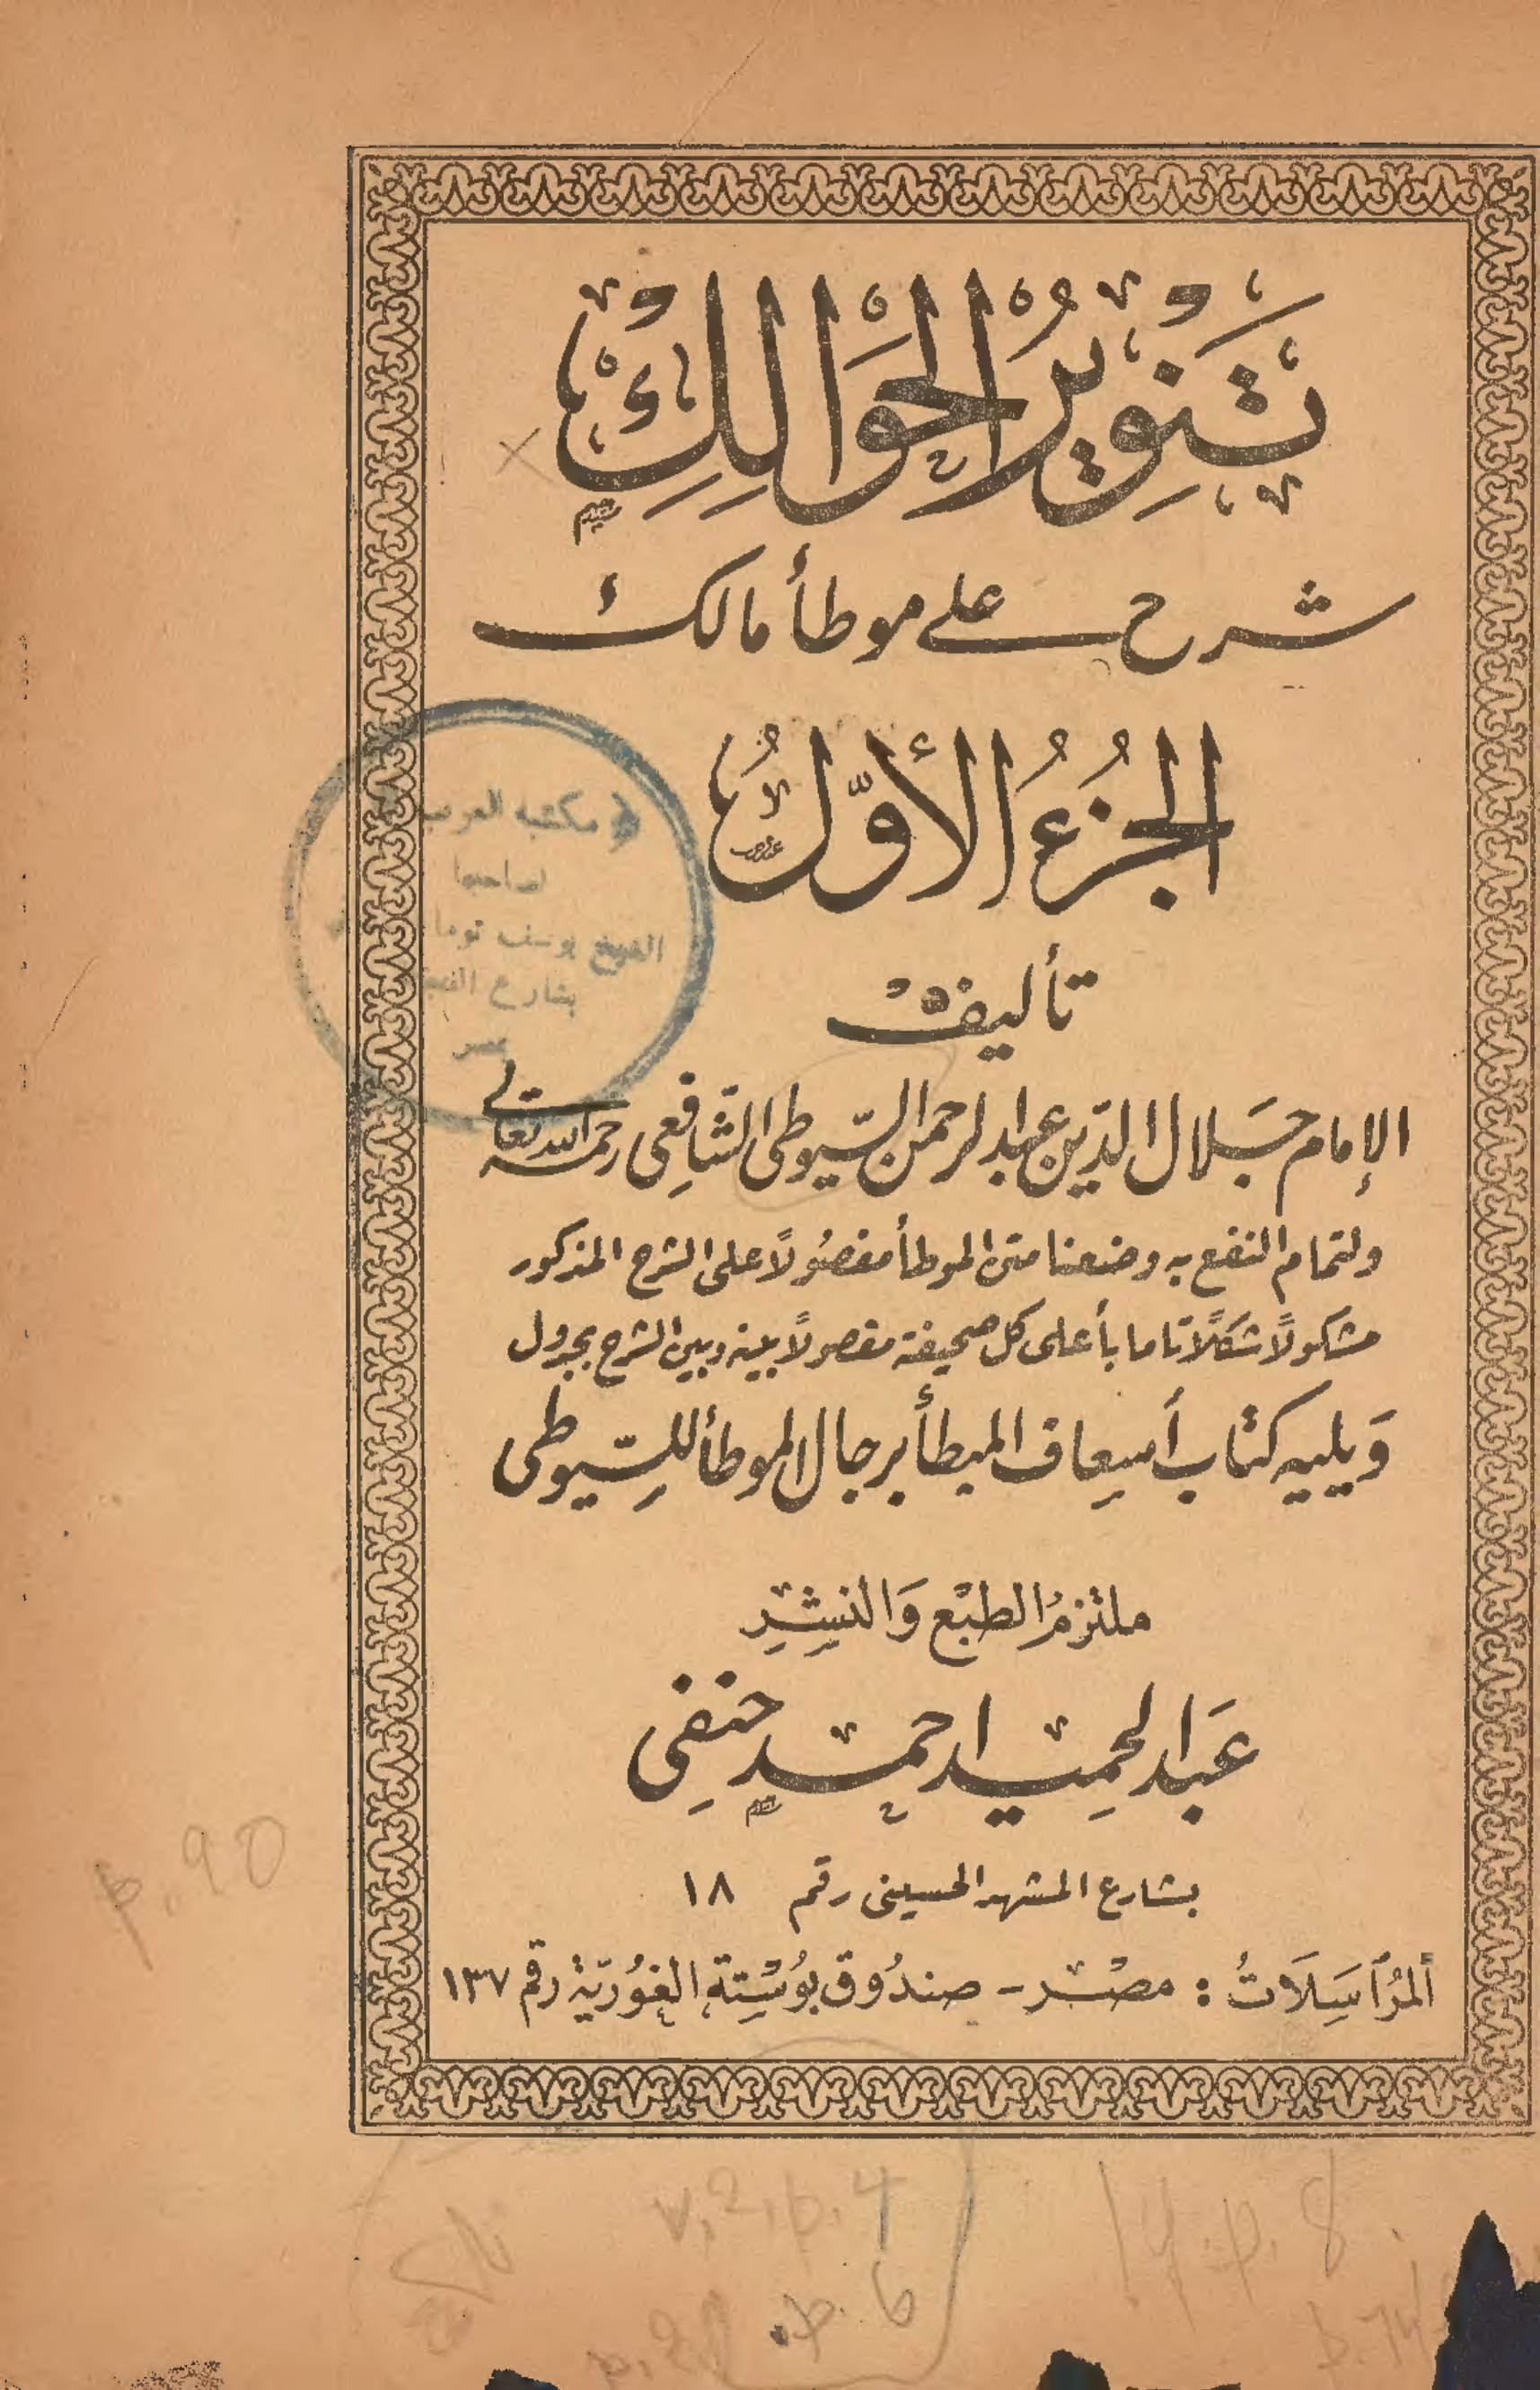 تَنْوِيرُ الْحَوَالِكْ
شرح على موطأ مالك
الجُزءُ الأوّلُ
تأليف
الإمام جلال الدّين عبد الرحمن السّيوطى الشّافعى رحمه الله تعالى
ولتمام النفع به وضعنا متن الموطأ مفصُولًا على الشرح المذكور
مشكولًا شكلًا تاما بأعلى كل صحيفة مفصولًا بينه وبين الشرح بجدول
وَيليه كتاب أسعاف المبطأ برجال الموطأ للسّيوطى
ملتزمُ الطبْع وَالنشْرِ
عَبد الحميد احمد حنفى
بشارع المشهد الحسينى رقم ١٨
المُرَاسَلَاتُ : مصْر - صندُوق بوُسْتة الغوُريّة رقم ١٣٧
مكتبة العرب
لصاحبها
الشيخ يوسف توما
بشارع
مصر
p. 90
v. 2, p. 4
p. 8
p. 6